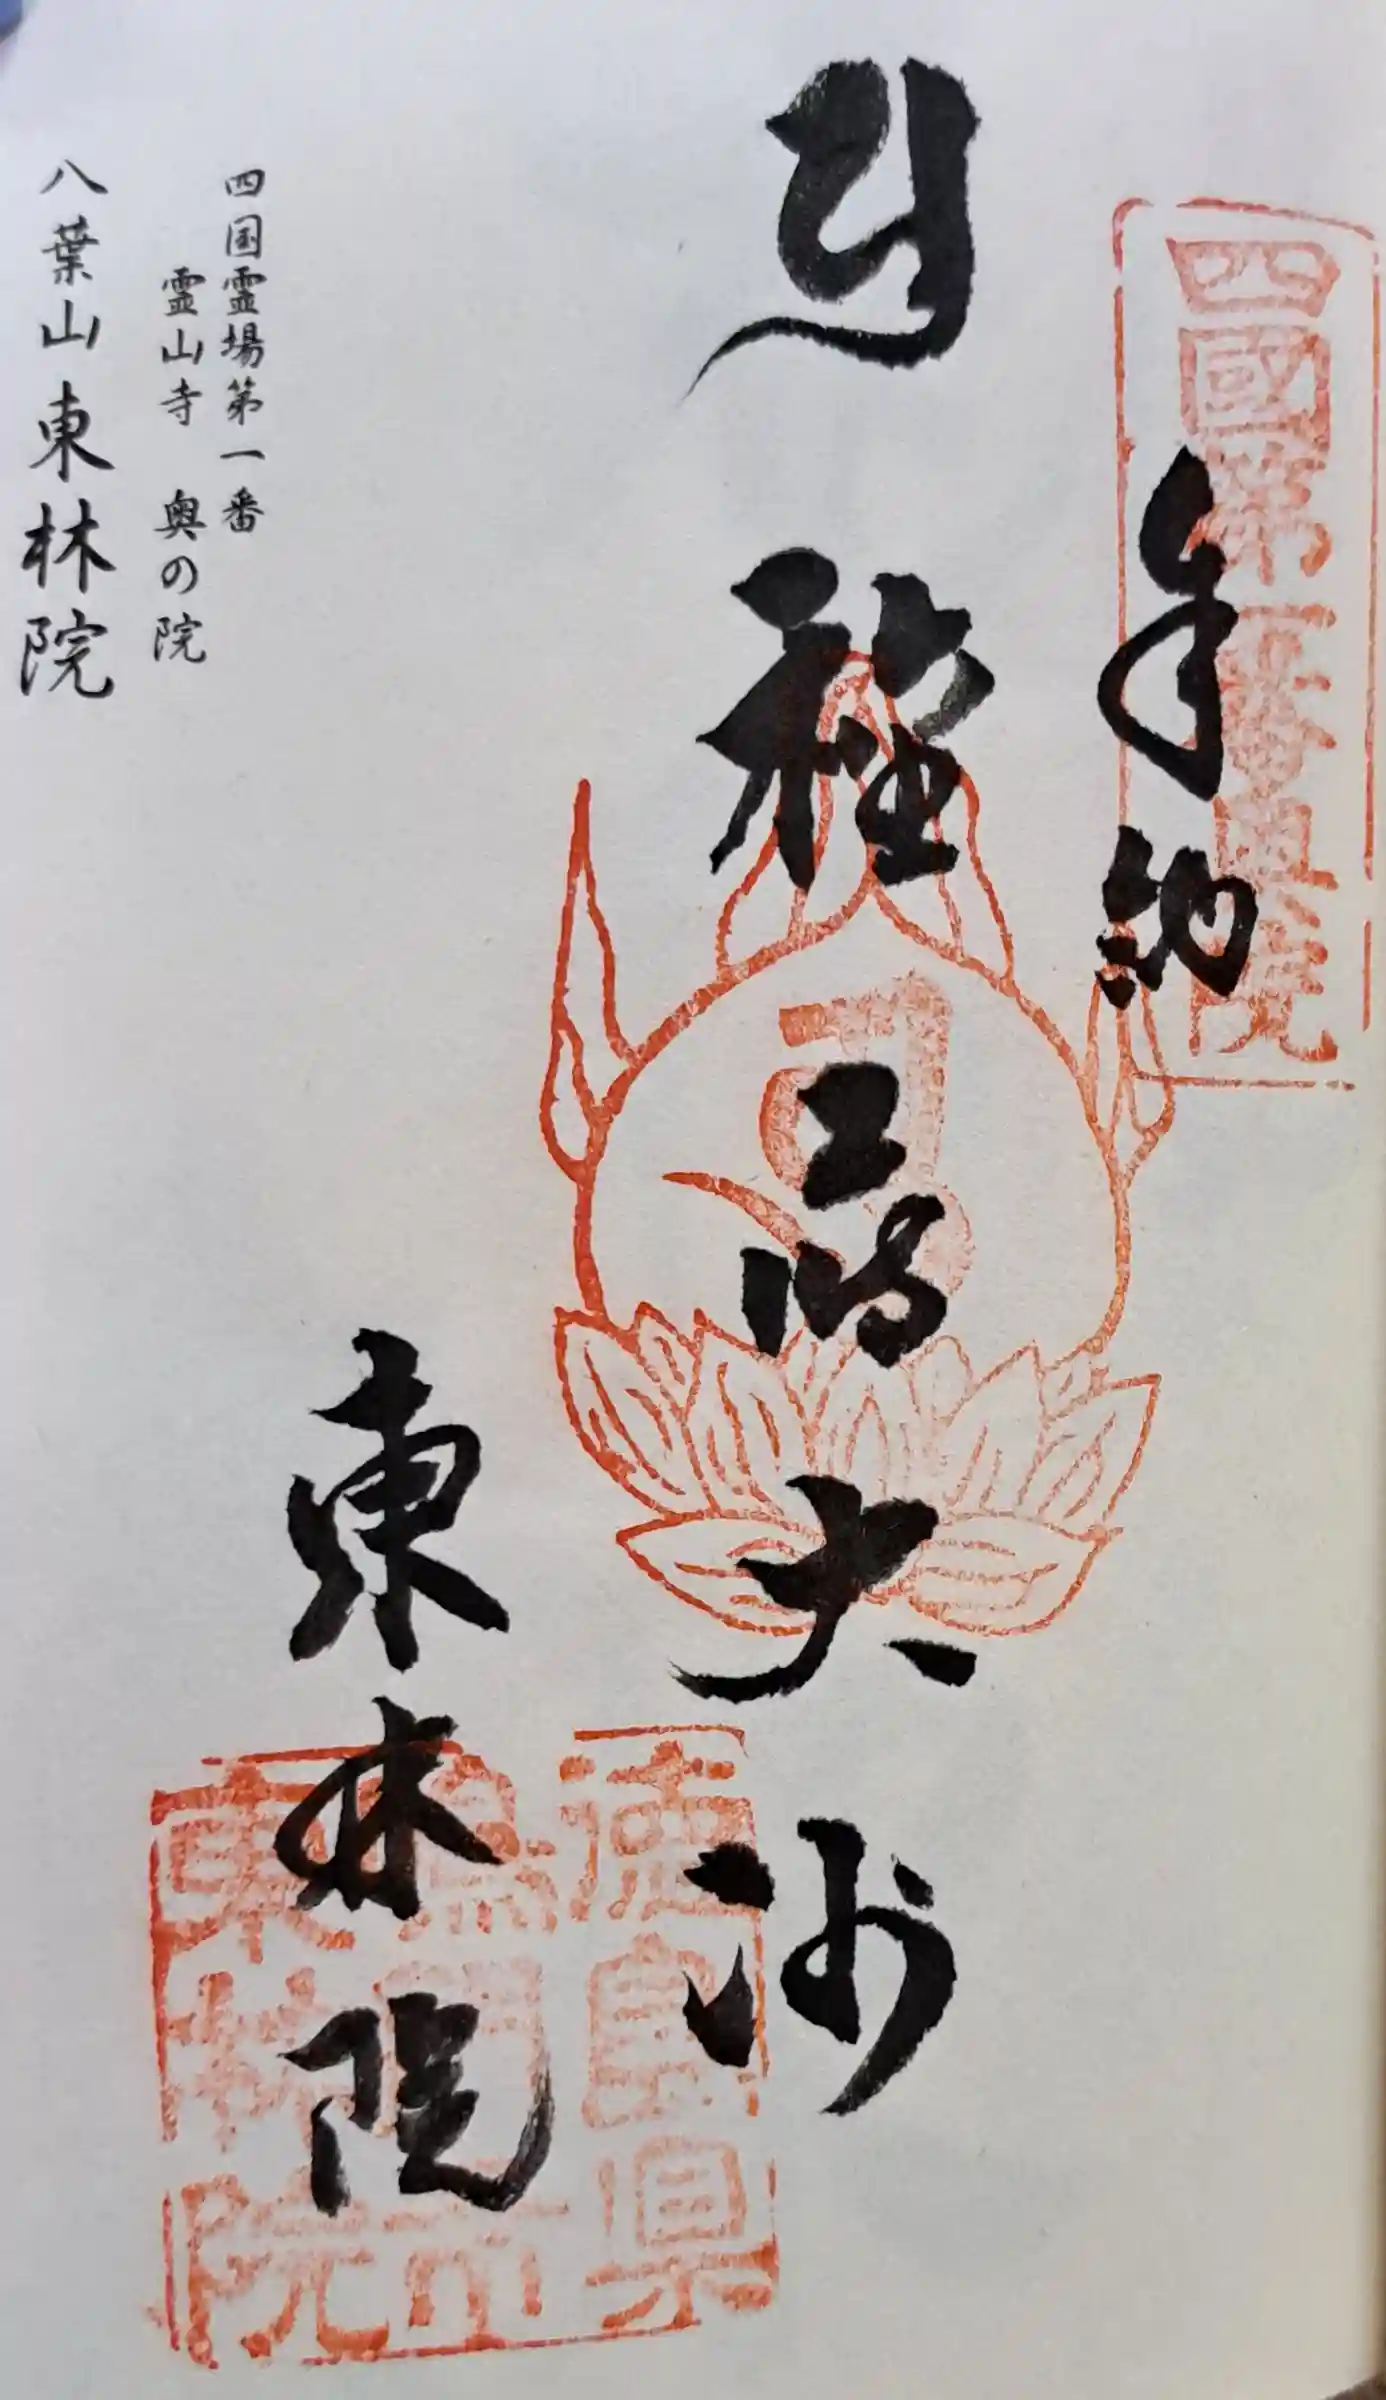 四國第一番奥院
奉納
種蒔大師
東林院
徳島県
鳴門市
東林院
四国霊場第一番
霊山寺 奥の院
八葉山東林院